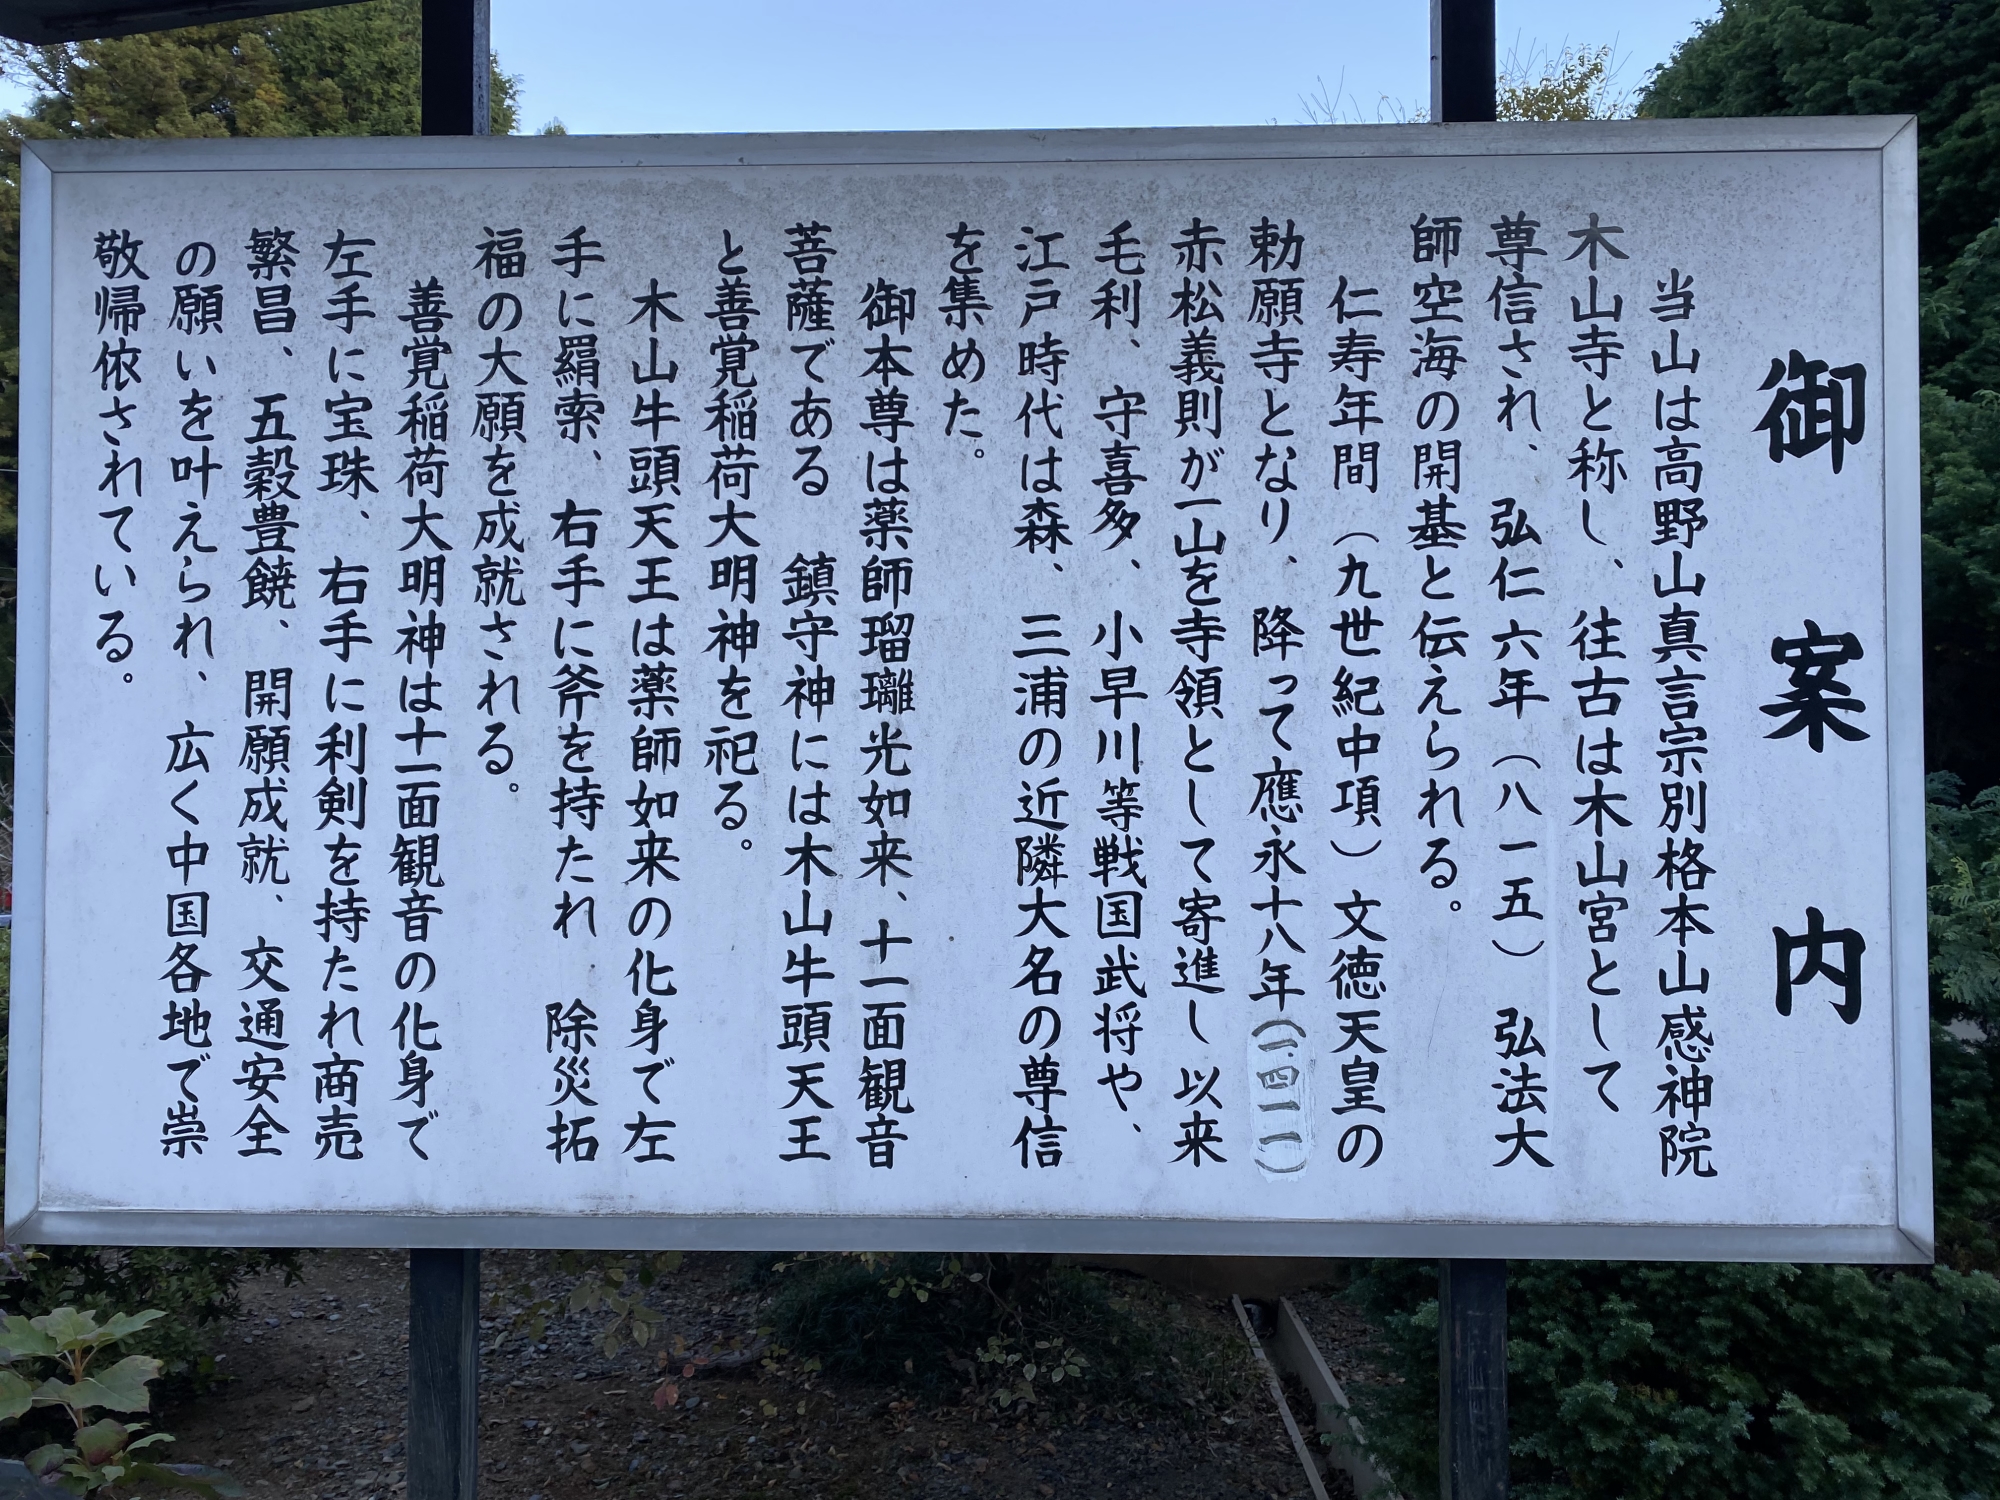 御案内
当山は高野山真言宗別格本山感神院
木山寺と称し、往古は木山宮として
尊信され、弘仁六年（八一五）弘法大
師空海の開基と伝えられる。
仁寿年間（九世紀中項）文徳天皇の
勅願寺となり、降って應永十八年（一四一一）
赤松義則が一山を寺領として寄進し以来
毛利、守喜多、小早川等戦国武将や、
江戸時代は森、三浦の近隣大名の尊信
を集めた。
御本尊は薬師瑠璃光如来、十一面観音
菩薩である 鎮守神には木山牛頭天王
と善覚稲荷大明神を祀る。
木山牛頭天王は薬師如来の化身で左
手に羂索、右手に斧を持たれ 除災拓
福の大願を成就される。
善覚稲荷大明神は十一面観音の化身で
左手に宝珠、右手に利剣を持たれ商売
繁昌、五穀豊饒、開願成就、交通安全
の願いを叶えられ、広く中国各地で崇
敬帰依されている。